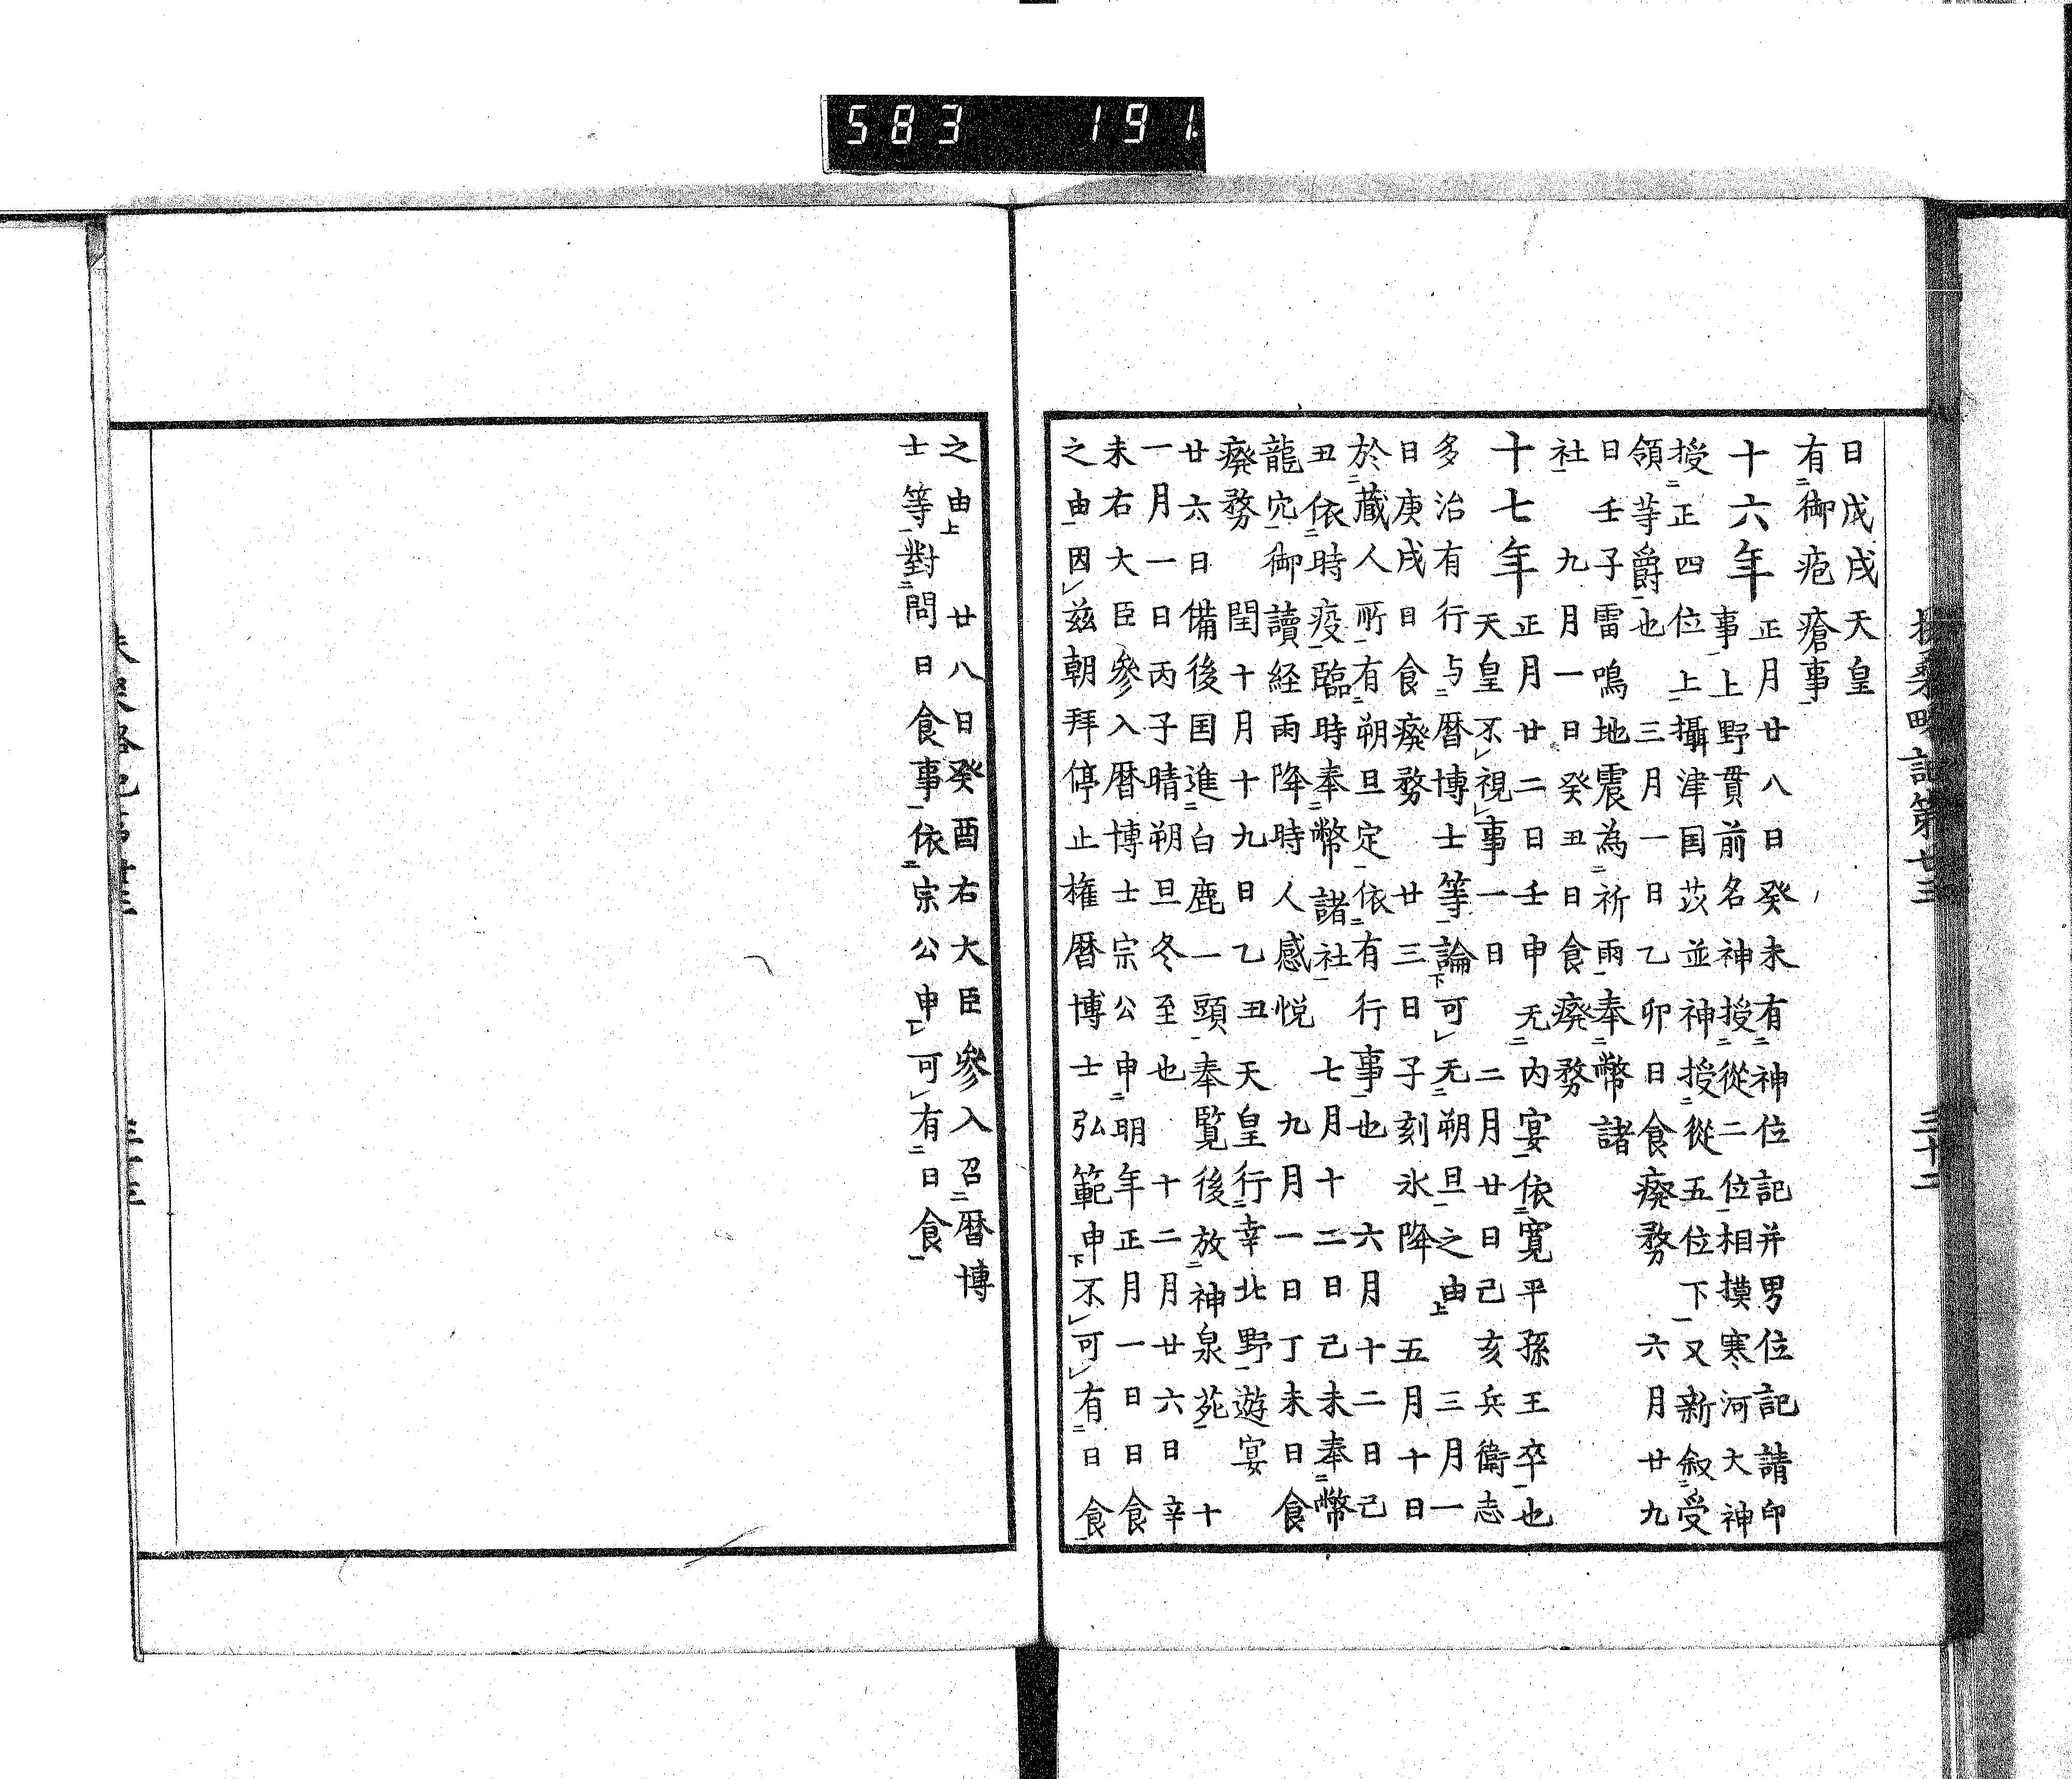 扶桑略記第廿三 三十二
日戊戌天皇
有御疱瘡事
十六年 正月廿八日癸未有神位記并男位記請印
事上野貫前名神授從二位相摸寒河大神
授正四位上攝津国苡並神授從五位下又新叙受
領等爵也三月一日乙卯日食癈務 六月廿九
日壬子雷鳴地震為祈雨奉幣諸
社 九月一日癸丑日食癈務
十七年 正月廿二日壬申无内宴依寛平孫王卒也
天皇不視事一日 二月廿日己亥兵衞志
多治有行与暦博士等論可无朔旦之由 三月一
日庚戌日食癈務 廿三日子刻氷降 五月十日
於藏人所有朔旦定依有行事也 六月十二日己
丑依時疫臨時奉幣諸社 七月十二日己未奉幣
龍穴御讀経雨降時人感悦 九月一日丁未日食
癈務 閏十月十九日乙丑天皇行幸北野遊宴
廿六日備後国進白鹿一頭奉覧後放神泉苑 十
一月一日丙子晴朔旦冬至也 十二月廿六日辛
未右大臣參入暦博士宗公申明年正月一日日食
之由因兹朝拜停止権暦博士弘範申不可有日食
之由 廿八日癸酉右大臣參入召暦博
士等對問日食事依宗公申可有日食
583 191.